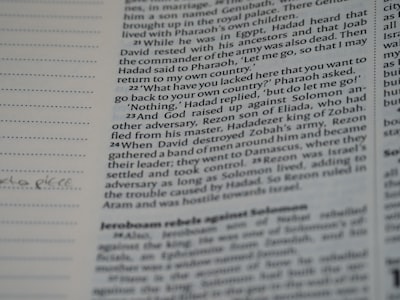 nes, in marriage.
him a son named Genubath, w
brought up in the royal palace. There Genu
lived with Pharaoh's own children.
21 While he was in Egypt, Hadad heard that
David rested with his ancestors and that Joab
the commander of the army was also dead. Then
Hadad said to Pharaoh, 'Let me go, so that I may
return to my own country.'
22 'What have you lacked here that you want to
go back to your own country?' Pharaoh asked.
'Nothing,' Hadad replied, 'but do let me go!'
23 And God raised up against Solomon an-
other adversary, Rezon son of Eliada, who had
fled from his master, Hadadezer king of Zobah.
24 When David destroyed Zobah's army, Rezon
gathered a band of men around him and became
their leader; they went to Damascus, where they
settled and took control. 25 Rezon was Israel's
adversary as long as Solomon lived, adding to
the trouble caused by Hadad. So Rezon ruled in
Aram and was hostile towards Israel.
Jeroboam rebels against Solomon
26 Also, Jeroboam son of Nebat rebelled
against the king. He was one of Solomon's of-
ficials, an Ephraimite from Zeredah, and his
mother was a widow named
27 Here is the account of how he rebelled
against the king: Solomon had built the